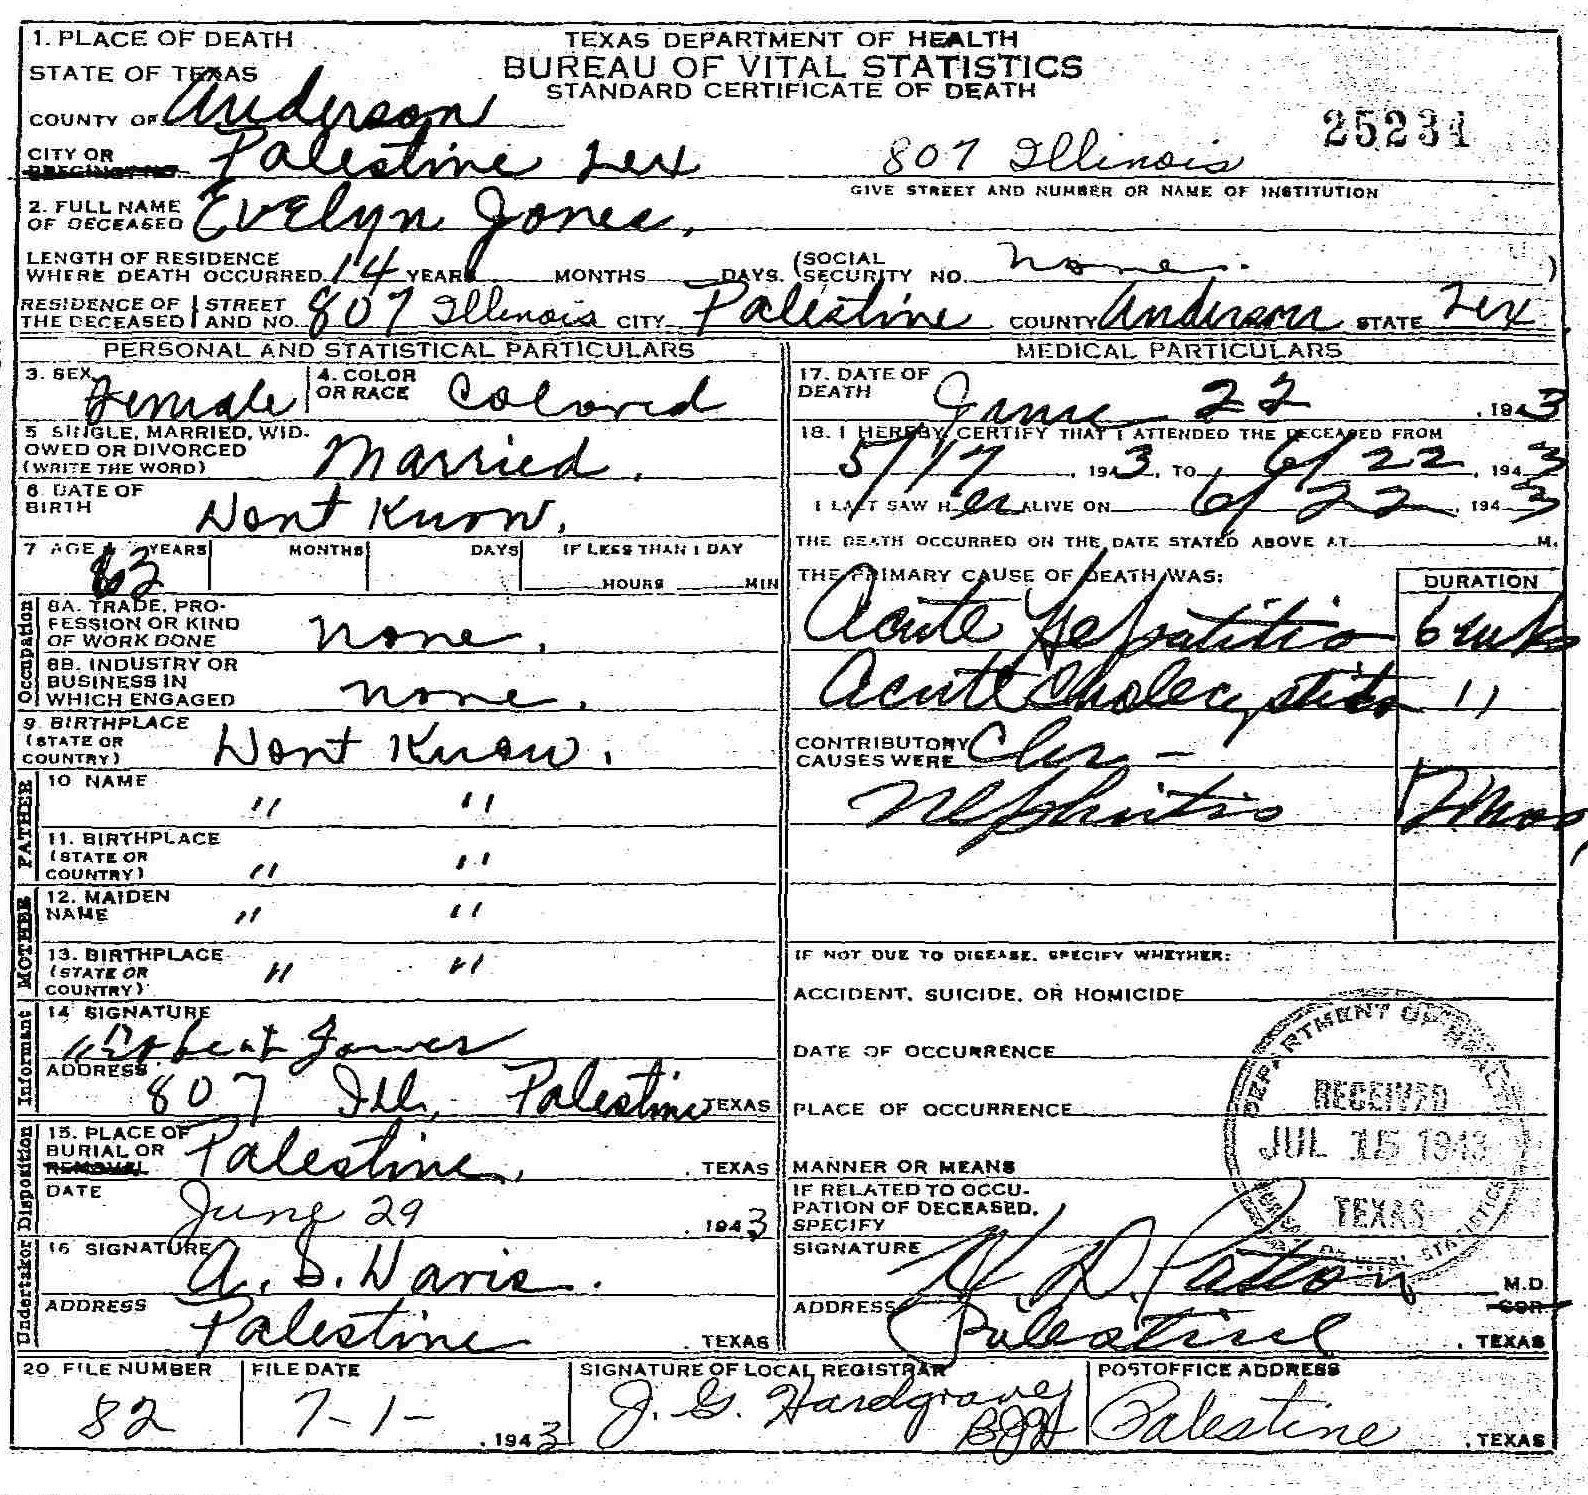 1. PLACE OF DEATH
TEXAS DEPARTMENT OF HEALTH
BUREAU OF VITAL STATISTICS
STANDARD CERTIFICATE OF DEATH
STATE OF TEXAS
COUNTY OF Anderson
25231
CITY OR PRECINCT NO. Palestine Tex 807 Illinois
GIVE STREET AND NUMBER OR NAME OF INSTITUTION
2. FULL NAME
OF DECEASED Evelyn Jones.
LENGTH OF RESIDENCE
WHERE DEATH OCCURRED 14 YEARS MONTHS DAYS. (SOCIAL SECURITY NO. none. )
RESIDENCE OF THE DECEASED STREET AND NO. 807 Illinois CITY Palestine COUNTY Anderson STATE Tex
PERSONAL AND STATISTICAL PARTICULARS
3. SEX Female 4. COLOR OR RACE Colored
5 SINGLE, MARRIED, WID-
OWED OR DIVORCED
(WRITE THE WORD) Married.
6. DATE OF
BIRTH Dont Know.
7 AGE YEARS MONTHS DAYS IF LESS THAN 1 DAY
HOURS MIN
Occupation
8A. TRADE, PRO-
FESSION OR KIND
OF WORK DONE none.
8B. INDUSTRY OR
BUSINESS IN
WHICH ENGAGED none.
9. BIRTHPLACE
(STATE OR
COUNTRY) Dont Know.
FATHER
10 NAME " "
11. BIRTHPLACE
(STATE OR
COUNTRY) " "
MOTHER
12. MAIDEN
NAME " "
13. BIRTHPLACE
(STATE OR
COUNTRY) " "
Informant
14 SIGNATURE
ADDRESS
807 Ill, Palestine TEXAS
Disposition
15. PLACE OF
BURIAL OR
REMOVAL Palestine, . TEXAS
DATE June 29 . 1943
Undertaker
16 SIGNATURE A. D. Davis.
ADDRESS Palestine . TEXAS
MEDICAL PARTICULARS
17. DATE OF
DEATH June 22 . 1943
18. I HEREBY CERTIFY THAT I ATTENDED THE DECEASED FROM
5/17 . 1943, TO 6/22 . 1943
I LAST SAW Her ALIVE ON 6/22 . 1943
THE DEATH OCCURRED ON THE DATE STATED ABOVE AT M.
THE PRIMARY CAUSE OF DEATH WAS: DURATION
Acute Hepatitis 6 wks
Acute Cholecystitis "
CONTRIBUTORY
CAUSES WERE Chr -
Nephritis mos
IF NOT DUE TO DISEASE, SPECIFY WHETHER:
ACCIDENT, SUICIDE, OR HOMICIDE
DATE OF OCCURRENCE
PLACE OF OCCURRENCE
MANNER OR MEANS
IF RELATED TO OCCU-
PATION OF DECEASED,
SPECIFY
SIGNATURE H. D. Patton M.D.
COR.
ADDRESS Palestine . TEXAS
DEPARTMENT OF HEALTH
RECEIVED
JUL 15 1943
TEXAS
BUREAU OF VITAL STATISTICS
20 FILE NUMBER FILE DATE SIGNATURE OF LOCAL REGISTRAR POSTOFFICE ADDRESS
82 7-1- . 1943 J. G. Hardgraves BJH Palestine . TEXAS